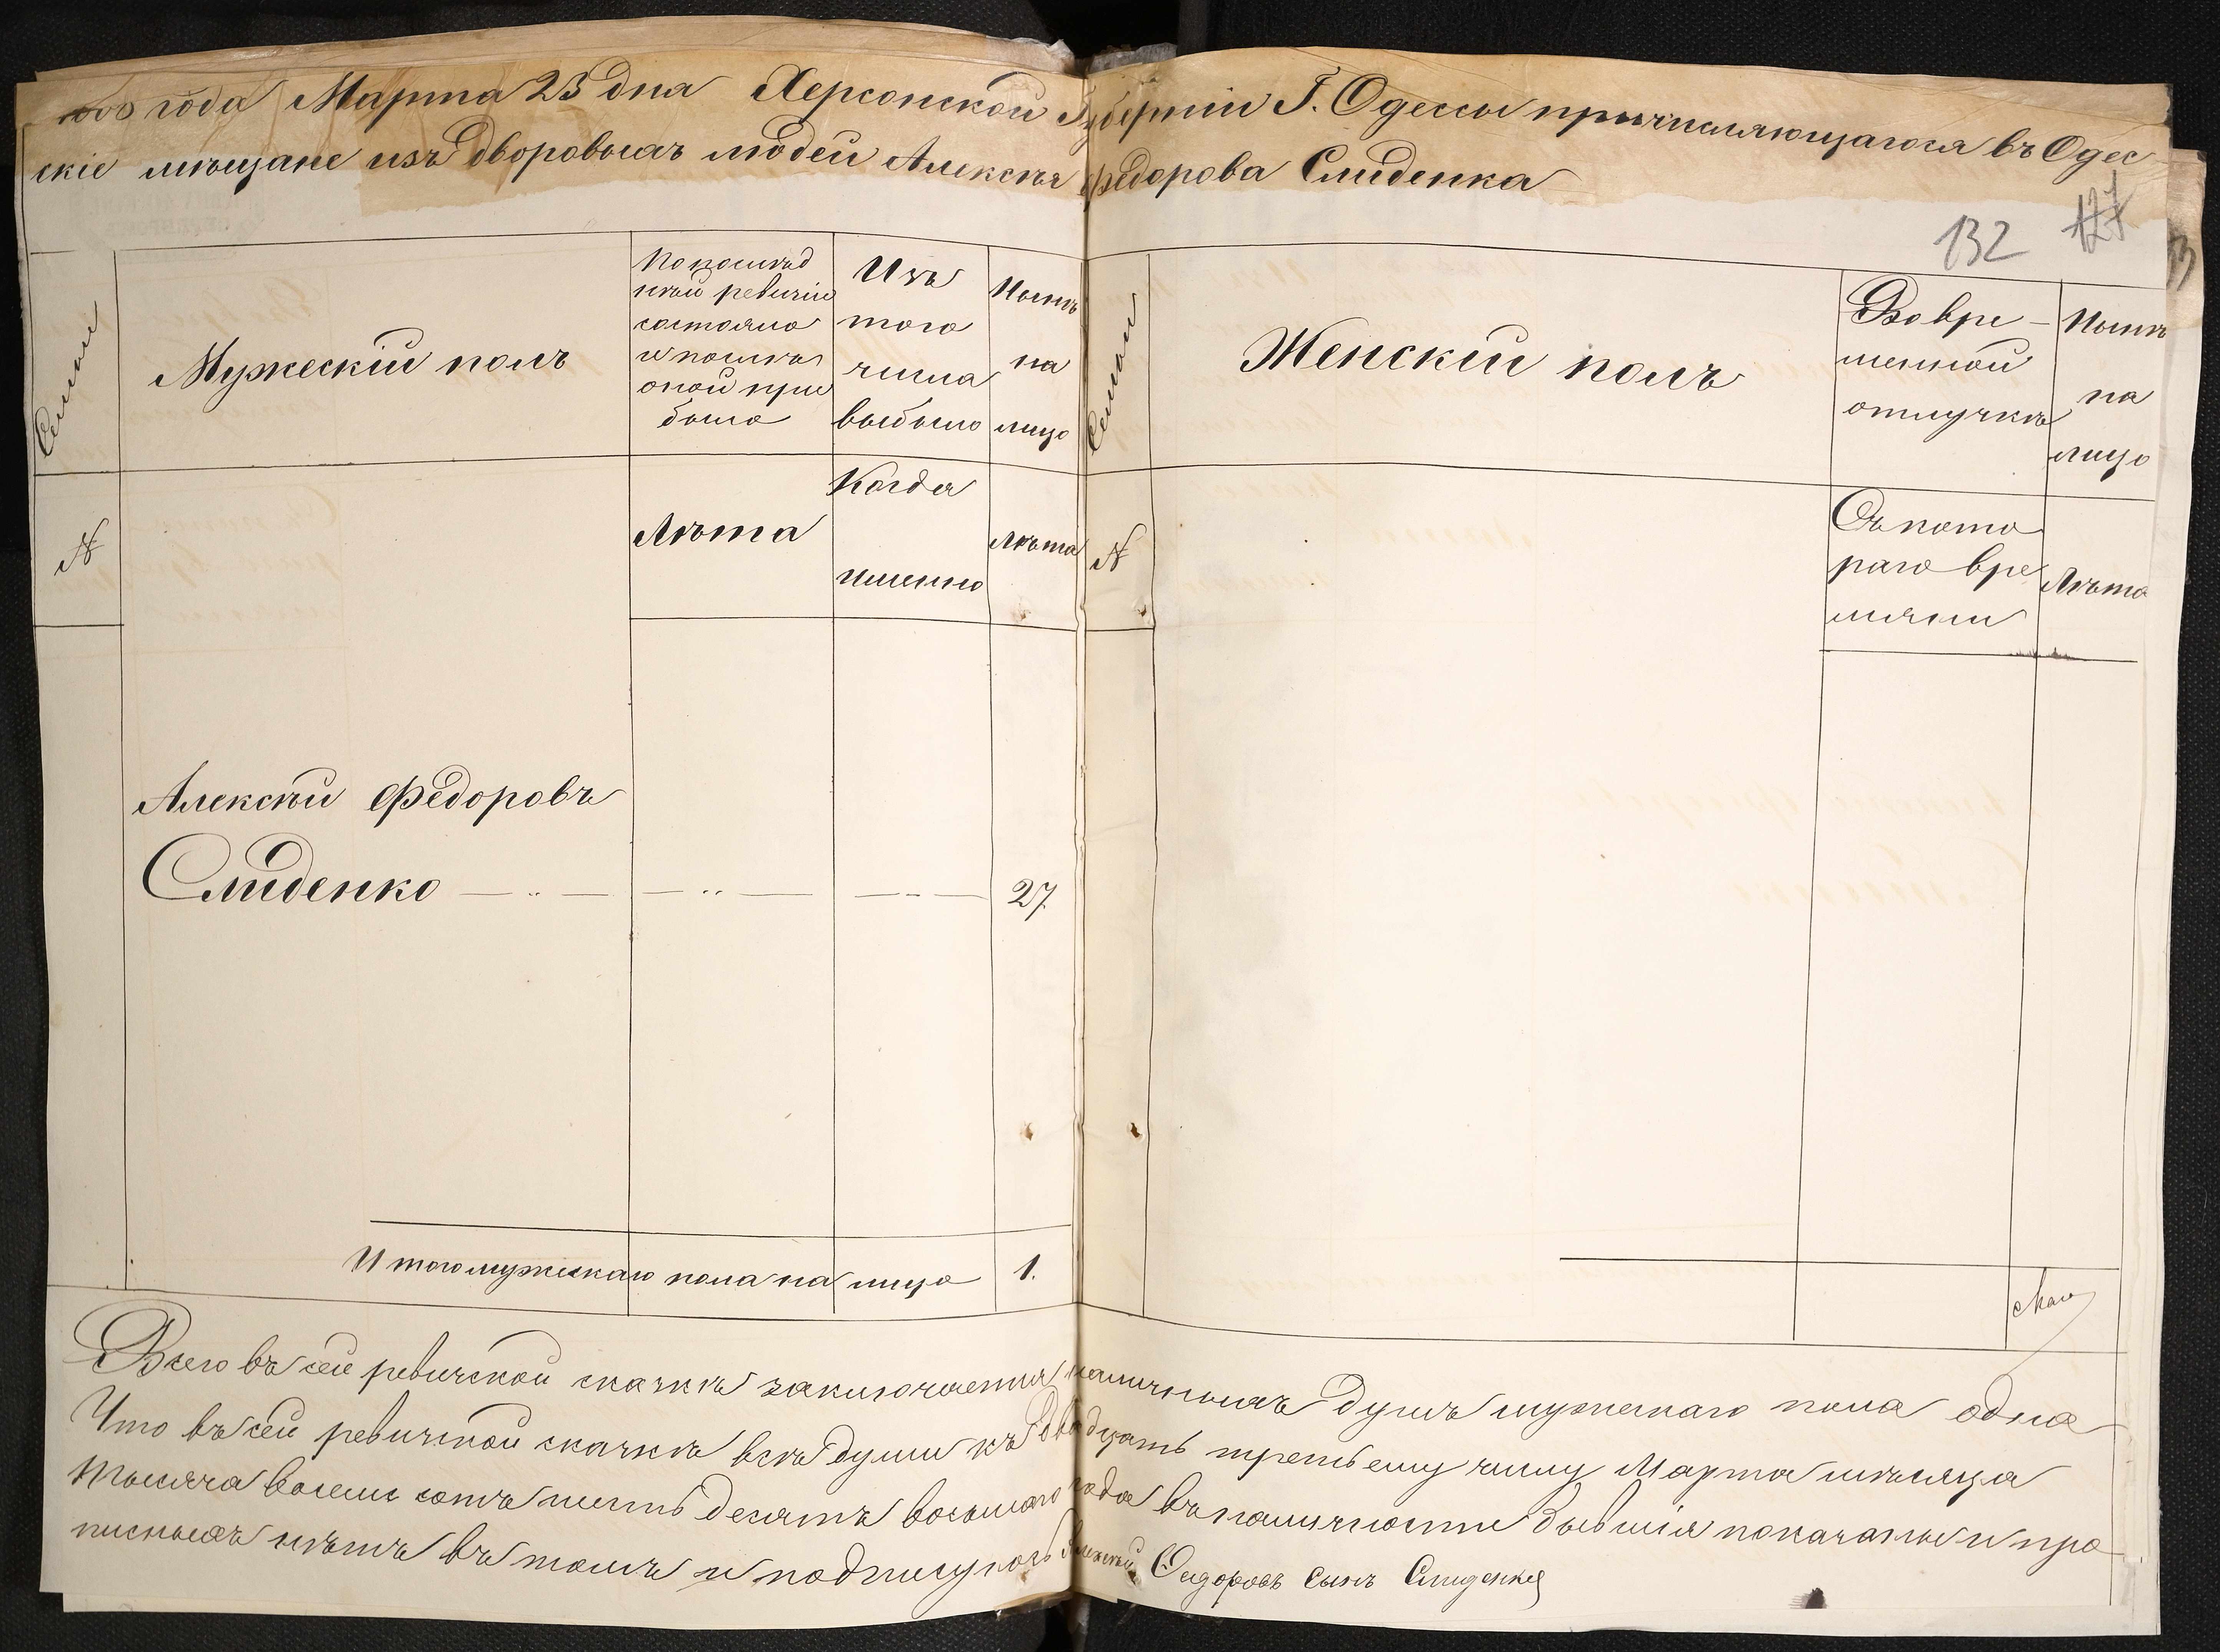 года Марта 23 дня Херсонской Губерніи Г. Одессы причисляющагося въ Одес-
скіе мѣщане изъ дворовыхъ людей Алексѣя Федорова Слиденка
132 127
Семьи
Мужескій полъ
По послѣд
нѣй ревизіи
состояло
и послѣ
оной при
было
Изъ
того
числа
выбыло
Нынѣ
на
лицо
Семьи
Женскій полъ
Во вре-
менной
отлучкѣ
Нынѣ
на
лицо
№
Лѣта
Когда
именно
Лѣта
№
Съ кото
раго вре
мяни
Лѣта
Алексѣй Федоровъ
Слиденко — „ — — „ — — -- — 27
Итого мужескаго пола на лицо 1.
Всего въ сей ревизской сказкѣ заключается наличныхъ душъ мужескаго пола одна
Что въ сей ревизской сказкѣ всѣ души къ двадцать третьему числу Марта мѣсяца
тысяча восемь сотъ пять десятъ восьмаго года въ наличности бывшія показаны и про
писныхъ нѣтъ въ томъ и подписуюсь Алексѣй Федоровъ сынъ Слиденко